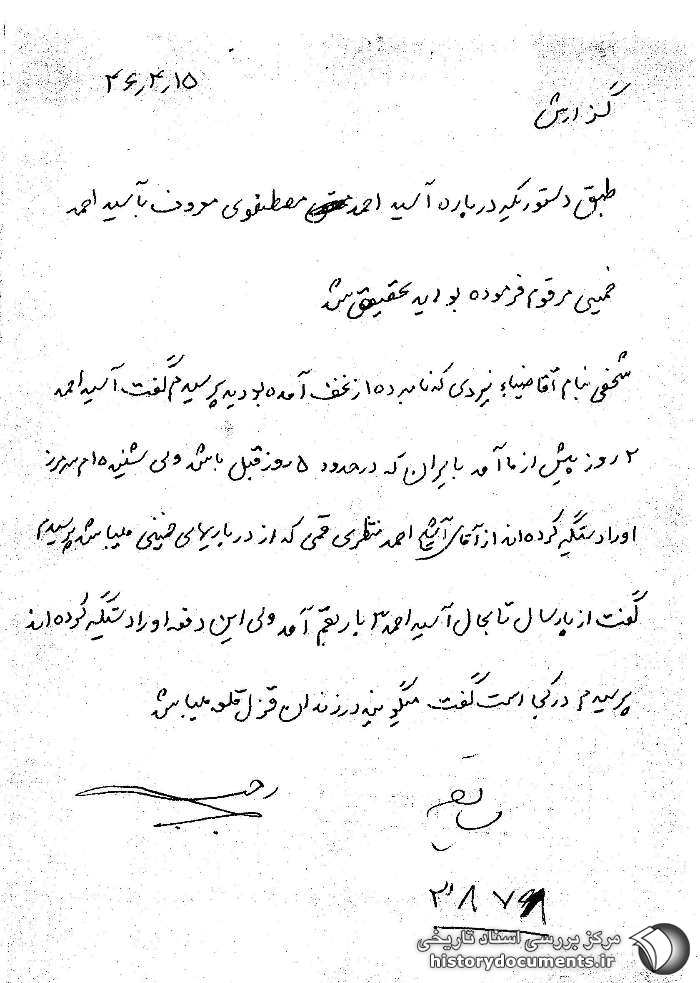 ۴۶٫۴٫۱۵
گزارش
طبق دستوریکه درباره آسید احمد مصطفوی معروف بآسید احمد
خمینی مرقوم فرموده بودید تحقیق شد
شخصی بنام آقا ضیاء یزدی که نامبرده از نجف آمده بودید پرسیدم گفت آسید احمد
۲ روز پیش از ما آمد بایران که در حدود ۵ روز قبل باشد ولی شنیده‌ام سرمرز
او را دستگیر کرده‌اند از آقای احمد منتظری قمی که از درباریهای خمینی میباشد پرسیدم
گفت از پارسال تا بحال آسید احمد ۳ بار بقم آمد ولی این دفعه او را دستگیر کرده‌اند
پرسیدم در کجا است گفت میگویند در زندان قزل قلعه میباشد
مرکز بررسی اسناد تاریخی
historydocuments.ir